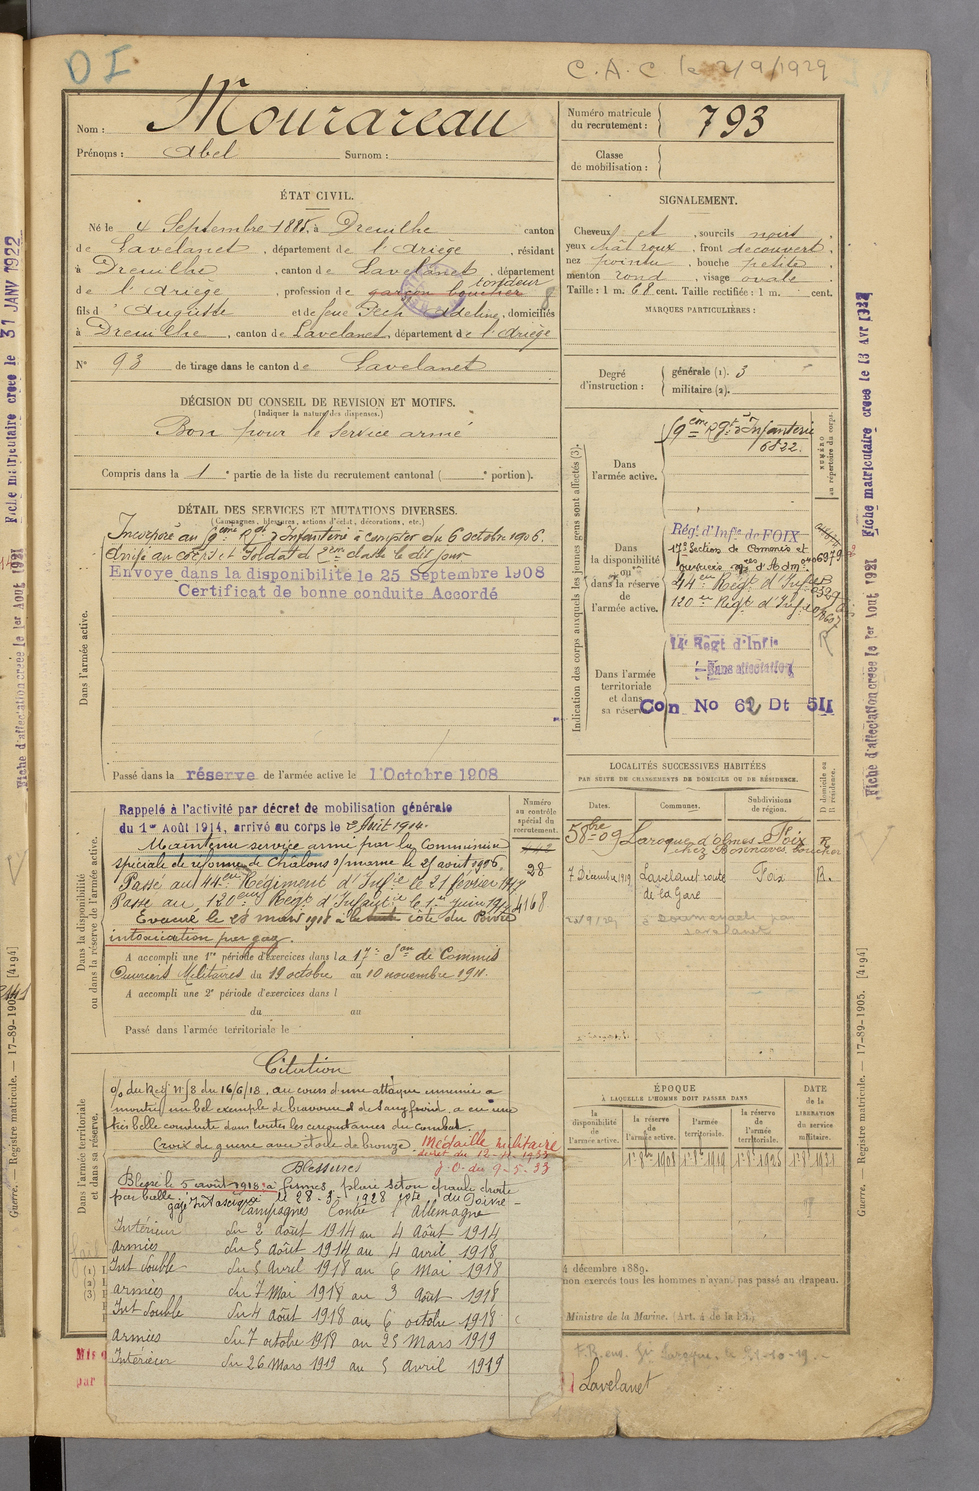 D I
C.A.C. le 2/9/1929
Nom : Mourareau
Prénoms : Abel Surnom :
Numéro matricule du recrutement : 793
Classe de mobilisation :
ÉTAT CIVIL.
Né le 4 Septembre 1885, à Dreuilhe canton
de Lavelanet, département de l'Ariège, résidant
à Dreuilhe, canton de Lavelanet, département
tondeur
de l'Ariège, profession de garçon boucher
fils d'Auguste et de feue Pech Adeline, domiciliés
à Dreuilhe, canton de Lavelanet, département de l'Ariège
N° 93 de tirage dans le canton de Lavelanet
SIGNALEMENT.
Cheveux et, sourcils noirs,
yeux chât roux, front découvert,
nez pointu, bouche petite,
menton rond, visage ovale.
Taille : 1 m. 68 cent. Taille rectifiée : 1 m. cent.
MARQUES PARTICULIÈRES :
Degré d'instruction : générale (1). 3
militaire (2).
DÉCISION DU CONSEIL DE REVISION ET MOTIFS.
(Indiquer la nature des dispenses.)
Bon pour le service armé
Compris dans la 1e partie de la liste du recrutement cantonal ( e portion).
DÉTAIL DES SERVICES ET MUTATIONS DIVERSES.
(Campagnes, blessures, actions d'éclat, décorations, etc.)
Incorporé au 9eme Rgt d'Infanterie à compter du 6 octobre 1906.
Arrivé au corps et Soldat de 2eme classe le dit jour
Envoyé dans la disponibilité le 25 Septembre 1908
Certificat de bonne conduite Accordé
Dans l'armée active.
Passé dans la réserve de l'armée active le 1 Octobre 1908
Indication des corps auxquels les jeunes gens sont affectés (3).
NUMÉRO au répertoire du corps.
Dans l'armée active.
9eme Rgt d'Infanterie
6822.
Dans la disponibilité ou dans la réserve de l'armée active.
Régt d'Infie de FOIX
17e Section de Commis et
ouvriers mres d'Adm
44eme Régt d'Infie
120eme Régt d'Infie
Dans l'armée territoriale et dans sa réserve
14e Régt d'Infie
Sans affectation
Con No 62 Dt 511
LOCALITÉS SUCCESSIVES HABITÉES
PAR SUITE DE CHANGEMENTS DE DOMICILE OU DE RÉSIDENCE.
Dates. Communes. Subdivisions de région. D domicile ou R résidence.
5 8bre 09 Laroque d'Olmes Foix R
chez Bonnaves boucher
7 Décembre 1919 Lavelanet route Foix R.
de la Gare
Dans la disponibilité ou dans la réserve de l'armée active.
Numéro au contrôle spécial du recrutement.
Rappelé à l'activité par décret de mobilisation générale
du 1er Août 1914, arrivé au corps le 2 Août 1914.
Maintenu service armé par la Commission
spéciale de réforme de Châlons s/marne le 25 août 1916
28
Passé au 44eme Régiment d'Infie le 21 février 1917
Passé au 120eme Régt d'Infanterie le 1er juin 1917
4168
Evacué le 28 mars 1918 côte du Poivre
intoxication par gaz.
A accompli une 1re période d'exercices dans la 17e Son de Commis
Ouvriers Militaires du 19 octobre au 10 novembre 1911.
A accompli une 2e période d'exercices dans l
du au
Passé dans l'armée territoriale le
Dans l'armée territoriale et dans sa réserve.
Citation
o/ du Rég n° 18 du 16/6/18. au cours d'une attaque ennemie a
montré un bel exemple de bravoure et de sang froid, a eu une
très belle conduite dans toutes les circonstances du combat.
Croix de guerre avec étoile de bronze. Médaille militaire
J.O. du 9-5-33
Blessures
Blessé le 5 août 1918 à Fismes, plaie séton épaule droite
par balle
Campagnes Contre l'Allemagne
Intérieur du 2 août 1914 au 4 août 1914
armées du 5 août 1914 au 4 avril 1918
Int double du 5 avril 1918 au 6 Mai 1918
armées du 7 Mai 1918 au 3 Août 1918
Int double du 4 août 1918 au 6 octobre 1918
armées du 7 octobre 1918 au 25 Mars 1919
Intérieur du 26 Mars 1919 au 5 avril 1919
ÉPOQUE
À LAQUELLE L'HOMME DOIT PASSER DANS
DATE de la LIBÉRATION du service militaire.
la disponibilité de l'armée active. la réserve de l'armée active. l'armée territoriale. la réserve de l'armée territoriale.
1er 8re 1908 1er 8re 1919 1er 8re 1925 1er 8re 1931
décembre 1889.
non exercés tous les hommes n'ayant pas passé au drapeau.
Ministre de la Marine. (Art. 4 de la loi.)
Lavelanet
Mis
par
Fiche matriculaire créée le 31 JANV 1922
Fiche d'affectation créée le 1er Aout 1921
Guerre. — Registre matricule. — 17-89-1905. [4194]
Fiche matriculaire créée le 13 Avr 1922
Fiche d'affectation créée le 1er Aout 1921
Guerre. — Registre matricule. — 17-89-1905. [4194]